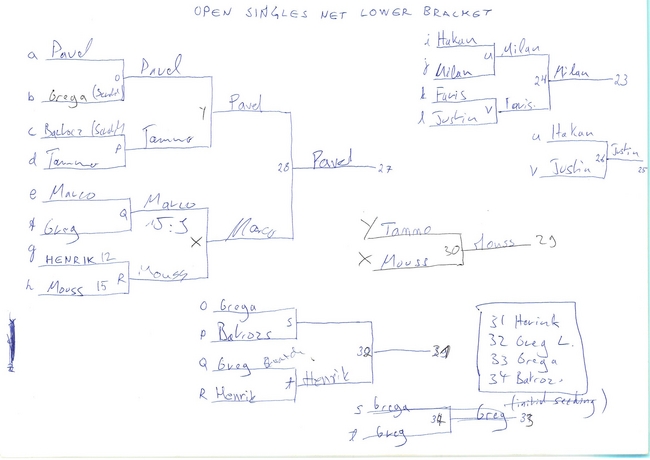 OPEN SINGLES NET LOWER BRACKET
a Pavel
O Pavel
b Grega
Y Pavel
c
d Tammo
P Tammo
28 Pavel 27
e Marco
Q Marco
15:3
f Greg
X Marco
g HENRIK 12
h Mouss 15
R Mouss
i Hakan
u Milan
j Milan
24 Milan 23
k Faris
l Justin
V Faris
u Hakan
26 Justin 25
V Justin
Y Tammo
30 Mouss 29
X Mouss
O Grega
S
P Batrozs
32 31
Q Greg
t Henrik
R Henrik
31 Henrik
32 Greg L.
33 Grega
34 Batroz.
(initial seeking)
S Grega
34 Greg 33
t Greg